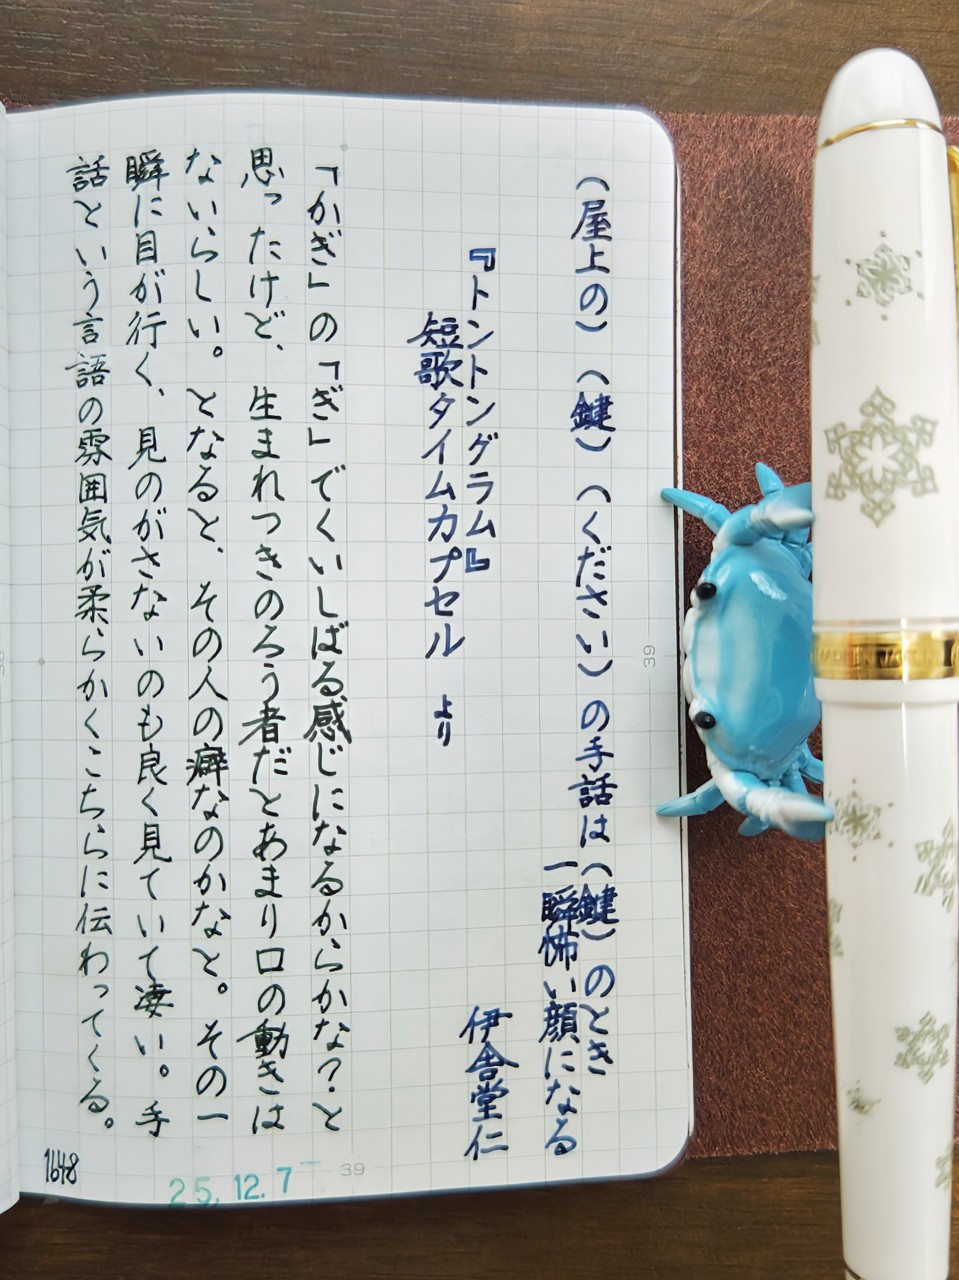 （屋上の）（鍵）（ください）の手話は（鍵）のとき
一瞬怖い顔になる
伊舎堂仁
『トントングラム』
短歌タイムカプセル より
「かぎ」の「ぎ」でくいしばる感じになるからかな？と
思ったけど、生まれつきのろう者だとあまり口の動きは
ないらしい。となると、その人の癖なのかなと。その一
瞬に目が行く、見のがさないのも良く見ていて凄い。手
話という言語の雰囲気が柔らかくこちらに伝わってくる。
1648
25.12.7
39
39
MADE IN JAPAN